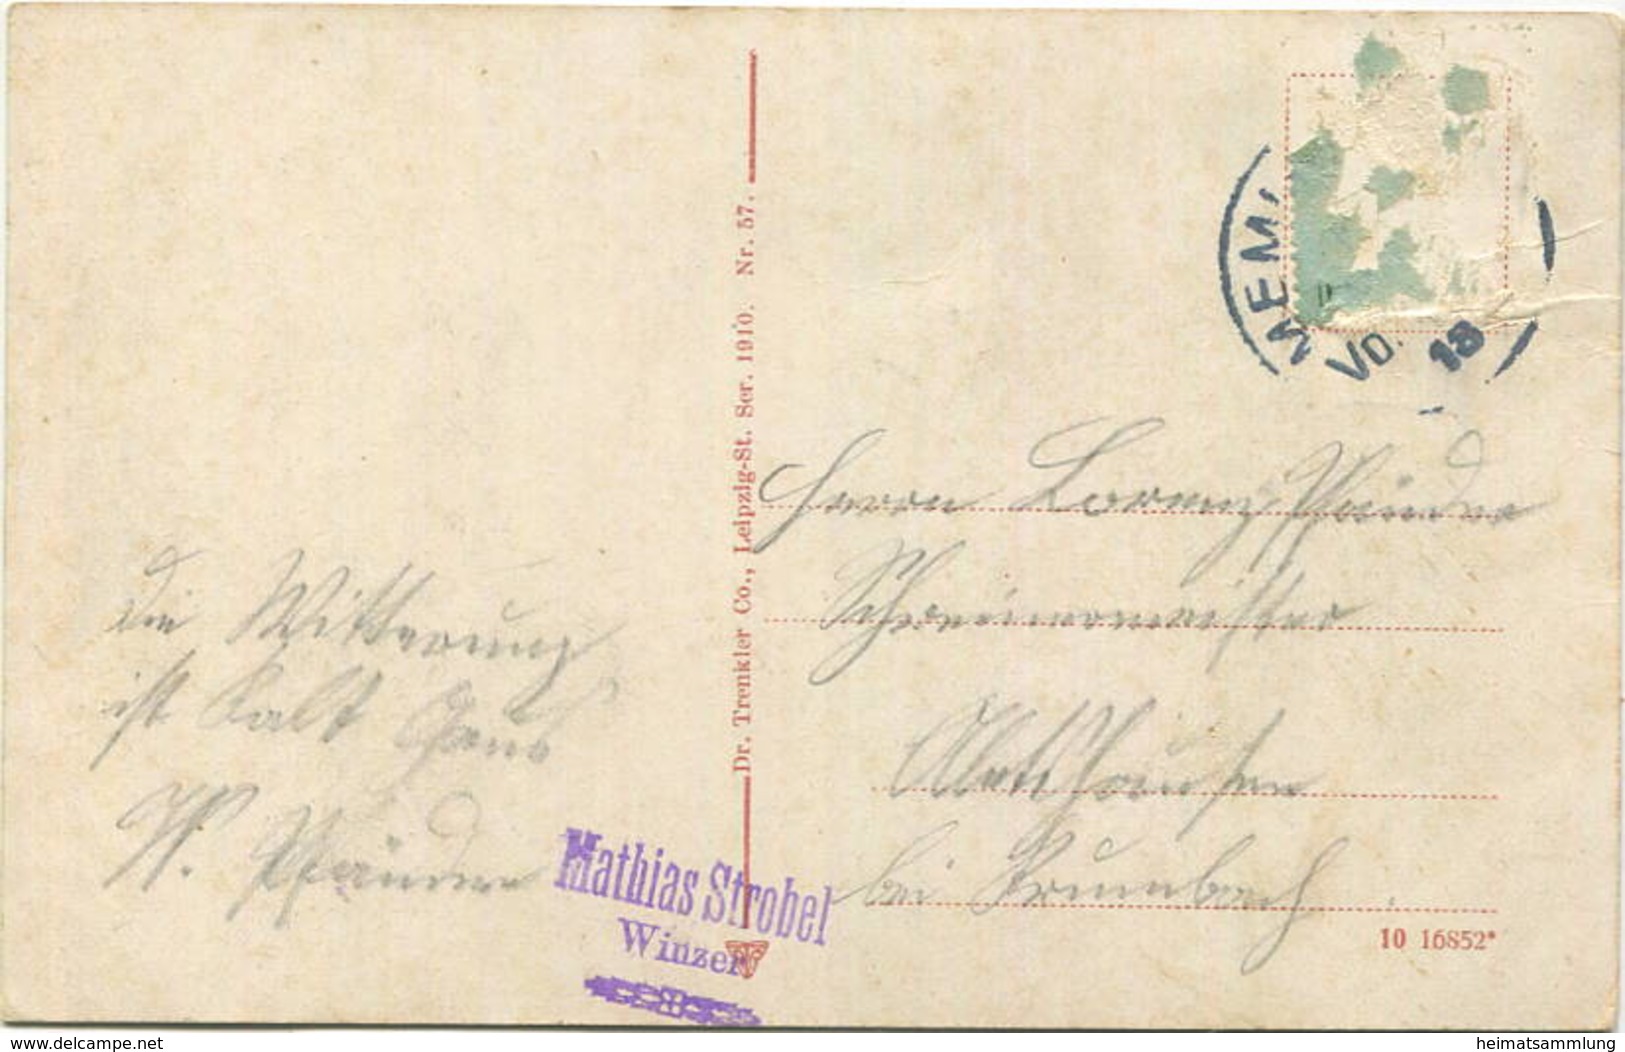 Dr. Trenkler Co., Leipzig-St. Ser. 1910. Nr. 57.
MEM
Vo.
18
Herrn Lorenz Pfänder
Schreinermeister
bei Krumbach
Die Witterung
ist kalt
W. Pfänder
Mathias Strobel
Winzer
10 16852*
www.delcampe.net
heimatsammlung